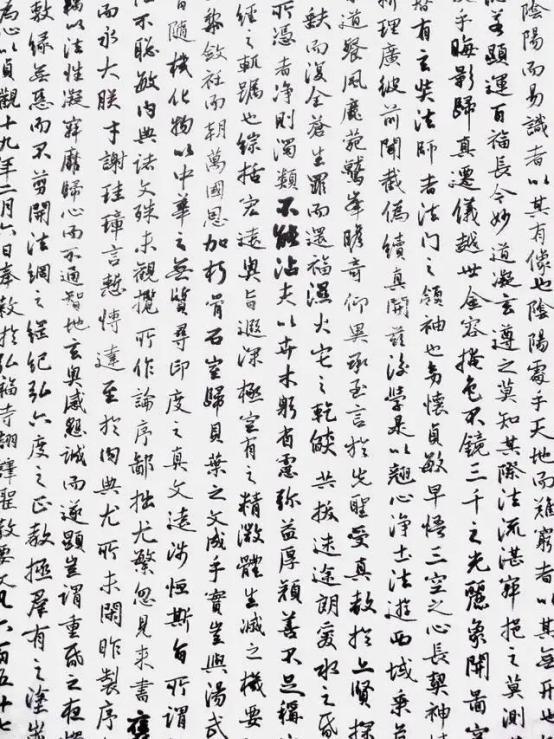 陰陽而易識者以其有像也陰陽處乎天地而難窮者以其無形也
若顯運百福長今妙道凝玄遵之莫知其際法流湛寂挹之莫測
乎晦影歸真遷儀越世金容掩色不鏡三千之光麗象開圖空
有玄奘法師者法門之領袖也幼懷貞敏早悟三空之心長契神情
析理廣彼前聞截偽續真開茲後學是以翹心淨土法遊西域乘危
道餐風鹿菀鷲峯瞻奇仰異承至言於先聖受真教於上賢探
缺而復全蒼生罪而還福濕火宅之乾燄共拔迷途朗愛水之昏
所憑者淨則濁類不能沾夫以卉木躬省慮彌益厚顏善不足稱
經之軌躅也綜括宏遠奧旨遐深極空有之精微體生滅之機要
黎斂衽而朝萬國恩加朽骨石室歸貝葉之文成乎實豈與湯武
隨機化物以中華之無質尋印度之真文遠涉恒斯自所謂
性不聰敏內典諸文殊未觀攬所作論序鄙拙尤繁忽見來書褒
而永大朕才謝珪璋言慙博達至於內典尤所未閑昨製序
以法性凝寂靡歸心而不通智地玄奧感懇誠而遂顯豈謂重昏之夜燭
教緣無惡而不剪開法網之綱紀弘六度之正教拯羣有之塗炭
為心以貞觀十九年二月六日奉敕於弘福寺翻譯聖教要文凡六百五十七